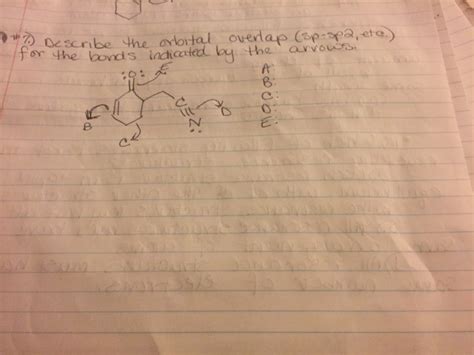 7) Describe the orbital overlap (sp-sp2, etc.)
for the bonds indicated by the arrows.
:O:
E
A:
B:
C:
D:
E:
C
D
B
N
C